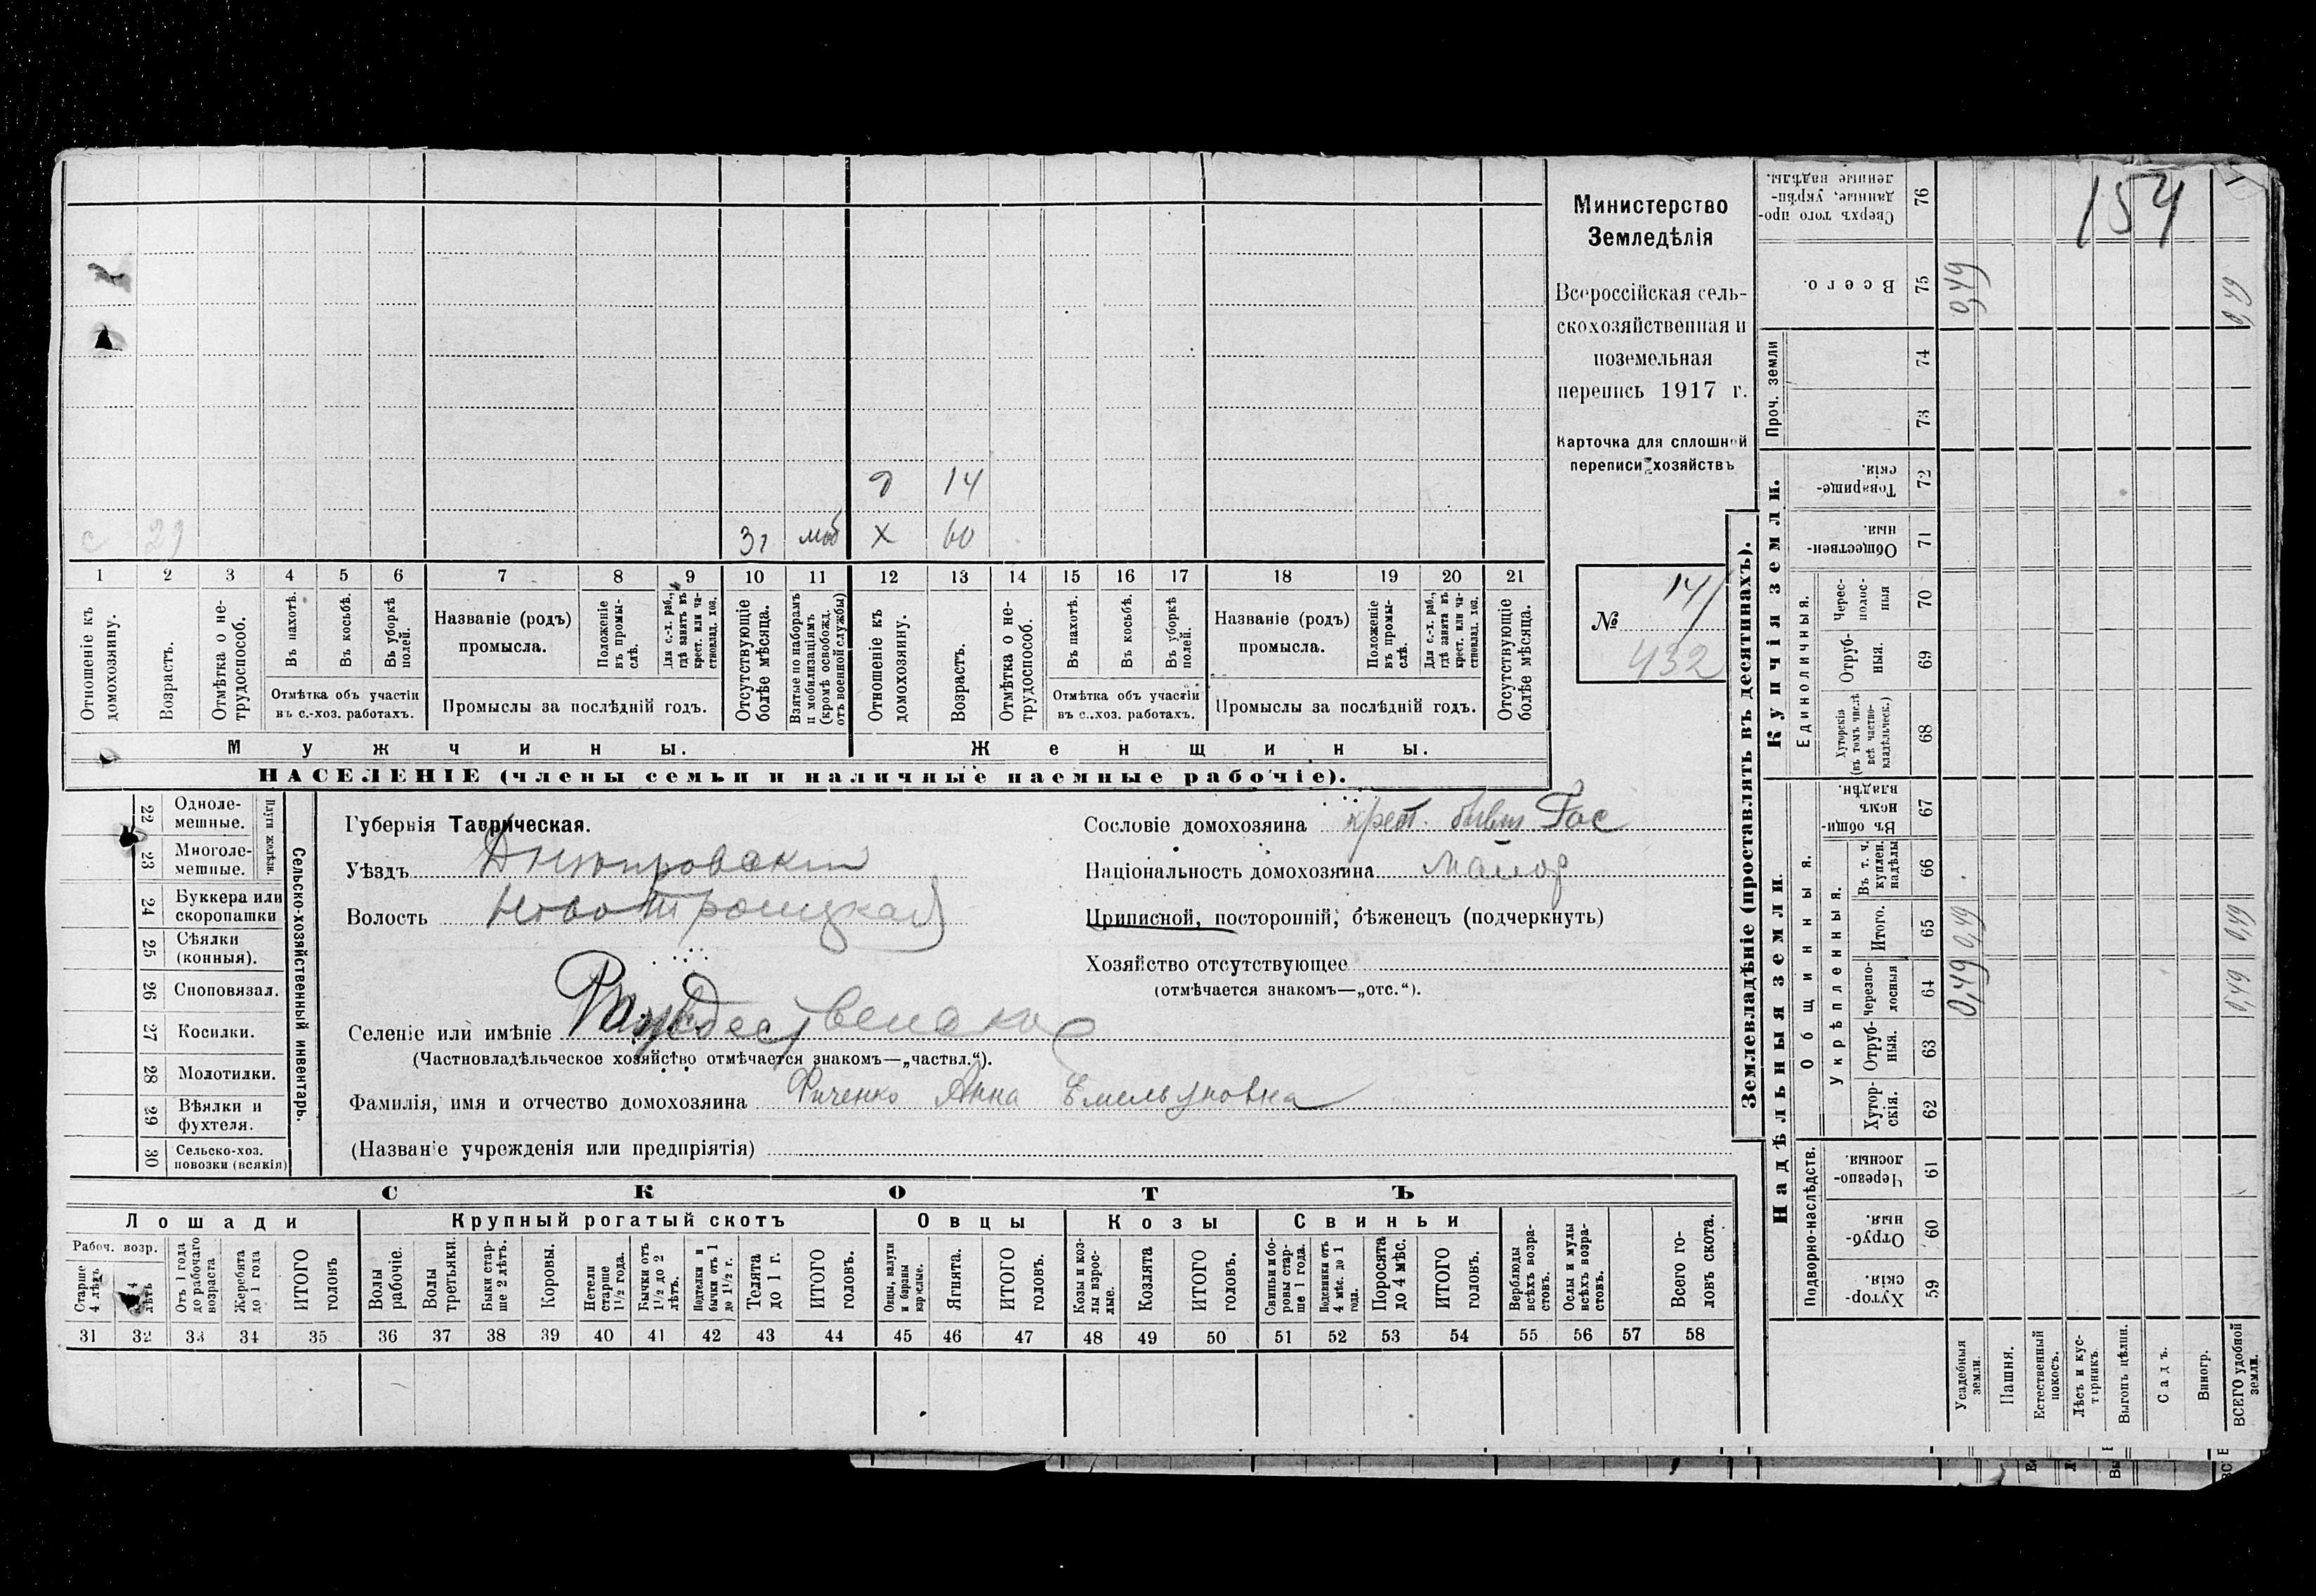 154
Министерство
Земледѣлія
Всероссійская сель-
скохозяйственная и
поземельная
перепись 1917 г.
Карточка для сплошной
переписи хозяйствъ
№ 141
432
д 14
с 29 3г моб х 60
1 2 3 4 5 6 7 8 9 10 11 12 13 14 15 16 17 18 19 20 21
Отношеніе къ домохозяину.
Возрастъ.
Отмѣтка о не-трудоспособ.
Въ пахотѣ.
Въ косьбѣ.
Въ уборкѣ полей.
Отмѣтка объ участіи
въ с.-хоз. работахъ.
Названіе (родъ)
промысла.
Положеніе въ промы-слѣ.
Для с.-х. раб., гдѣ занятъ въ крест. или ча-стновлад. хоз.
Промыслы за послѣдній годъ.
Отсутствующіе болѣе мѣсяца.
Взятые по наборамъ и мобилизаціямъ (кромѣ освобожд. отъ военной службы)
Отношеніе къ домохозяину.
Возрастъ.
Отмѣтка о не-трудоспособ.
Въ пахотѣ.
Въ косьбѣ.
Въ уборкѣ полей.
Отмѣтка объ участіи
въ с.-хоз. работахъ.
Названіе (родъ)
промысла.
Положеніе въ промы-слѣ.
Для с.-х. раб., гдѣ занята въ крест. или ча-стновлад. хоз.
Промыслы за послѣдній годъ.
Отсутствующіе болѣе мѣсяца.
Мужчины.
Женщины.
НАСЕЛЕНІЕ (члены семьи и наличные наемные рабочіе).
Сельско-хозяйственный инвентарь.
Плуги желѣзн.
22 Одноле-мешные.
23 Многоле-мешные.
24 Буккера или скоропашки
25 Сѣялки (конныя).
26 Сноповязал.
27 Косилки.
28 Молотилки.
29 Вѣялки и фухтеля.
30 Сельско-хоз. повозки (всякія)
Губернія Таврическая.
Уѣздъ Днѣпровскій
Волость Новотроицкая
Селеніе или имѣніе Рождественско
(Частновладѣльческое хозяйство отмѣчается знакомъ—„частвл.“).
Фамилія, имя и отчество домохозяина Фиченко Анна Емельяновна
(Названіе учрежденія или предпріятія)
Сословіе домохозяина крест. бывш Гос
Національность домохозяина малор
Приписной, посторонній, бѣженецъ (подчеркнуть)
Хозяйство отсутствующее
(отмѣчается знакомъ—„отс.“).
СКОТЪ
Лошади
Крупный рогатый скотъ
Овцы
Козы
Свиньи
Рабоч. возр.
Старше 4 лѣтъ
4 лѣтъ
Отъ 1 года до рабочаго возраста
Жеребята до 1 года
ИТОГО головъ
Волы рабочіе.
Волы третьяки.
Быки стар-ше 2 лѣтъ.
Коровы.
Нетели старше 1½ года.
Бычки отъ 1½ до 2 лѣтъ.
Подтелки и бычки отъ 1 до 1½ г.
Телята до 1 г.
ИТОГО головъ.
Овцы, валухи и бараны взрослые.
Ягнята.
ИТОГО головъ.
Козы и коз-лы взрос-лые.
Козлята
ИТОГО головъ.
Свиньи и бо-ровы стар-ше 1 года.
Подсвинки отъ 4 мѣс. до 1 года.
Поросята до 4 мѣс.
ИТОГО головъ.
Верблюды всѣхъ возра-стовъ.
Ослы и мулы всѣхъ возра-стовъ.
Всего го-ловъ скота.
31 32 33 34 35 36 37 38 39 40 41 42 43 44 45 46 47 48 49 50 51 52 53 54 55 56 57 58
Землевладѣніе (проставлять въ десятинахъ).
Надѣльныя земли.
Купчія земли.
Проч. земли
Подворно-наслѣдств.
Общинныя.
Укрѣпленныя.
Единоличныя.
Хутор-скія. 59
Отруб-ныя. 60
Черезпо-лосныя. 61
Хутор-скія. 62
Отруб-ныя. 63
Черезпо-лосныя 64
Итого. 65
Въ т. ч. куплен. надѣлы 66
Въ общи-номъ владѣн. 67
Хуторскія (въ томъ числѣ всѣ частно-владѣльческ.) 68
Отруб-ныя. 69
Черес-полос-ныя 70
Обществен-ныя. 71
Товарище-скія. 72
73
74
Всего. 75
Сверхъ того про-данные, укрѣп-ленные надѣлы. 76
Усадебныя земли. 0,49 0,49 0,49
Пашня.
Естественный покосъ.
Лѣсъ и кус-тарникъ.
Выгонъ цѣлин.
Садъ.
Виногр.
ВСЕГО удобной земли. 0,49 0,49 0,49